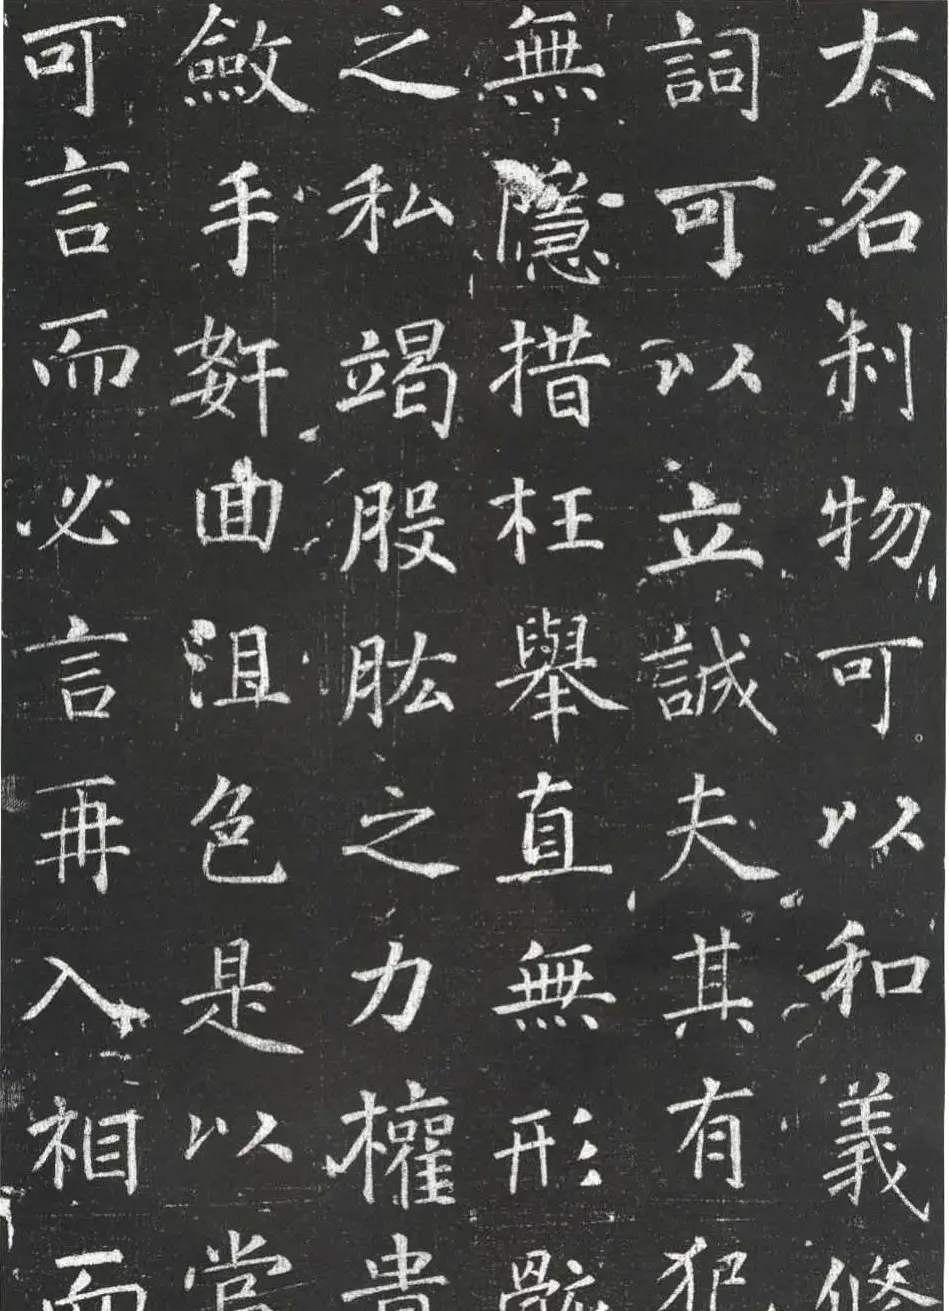 大名利物可以和義修
詞可以立誠夫其有犯
無隱措枉舉直無形骸
之私竭股肱之力權貴
斂手姧囬沮色是以
可言而必言再入相而